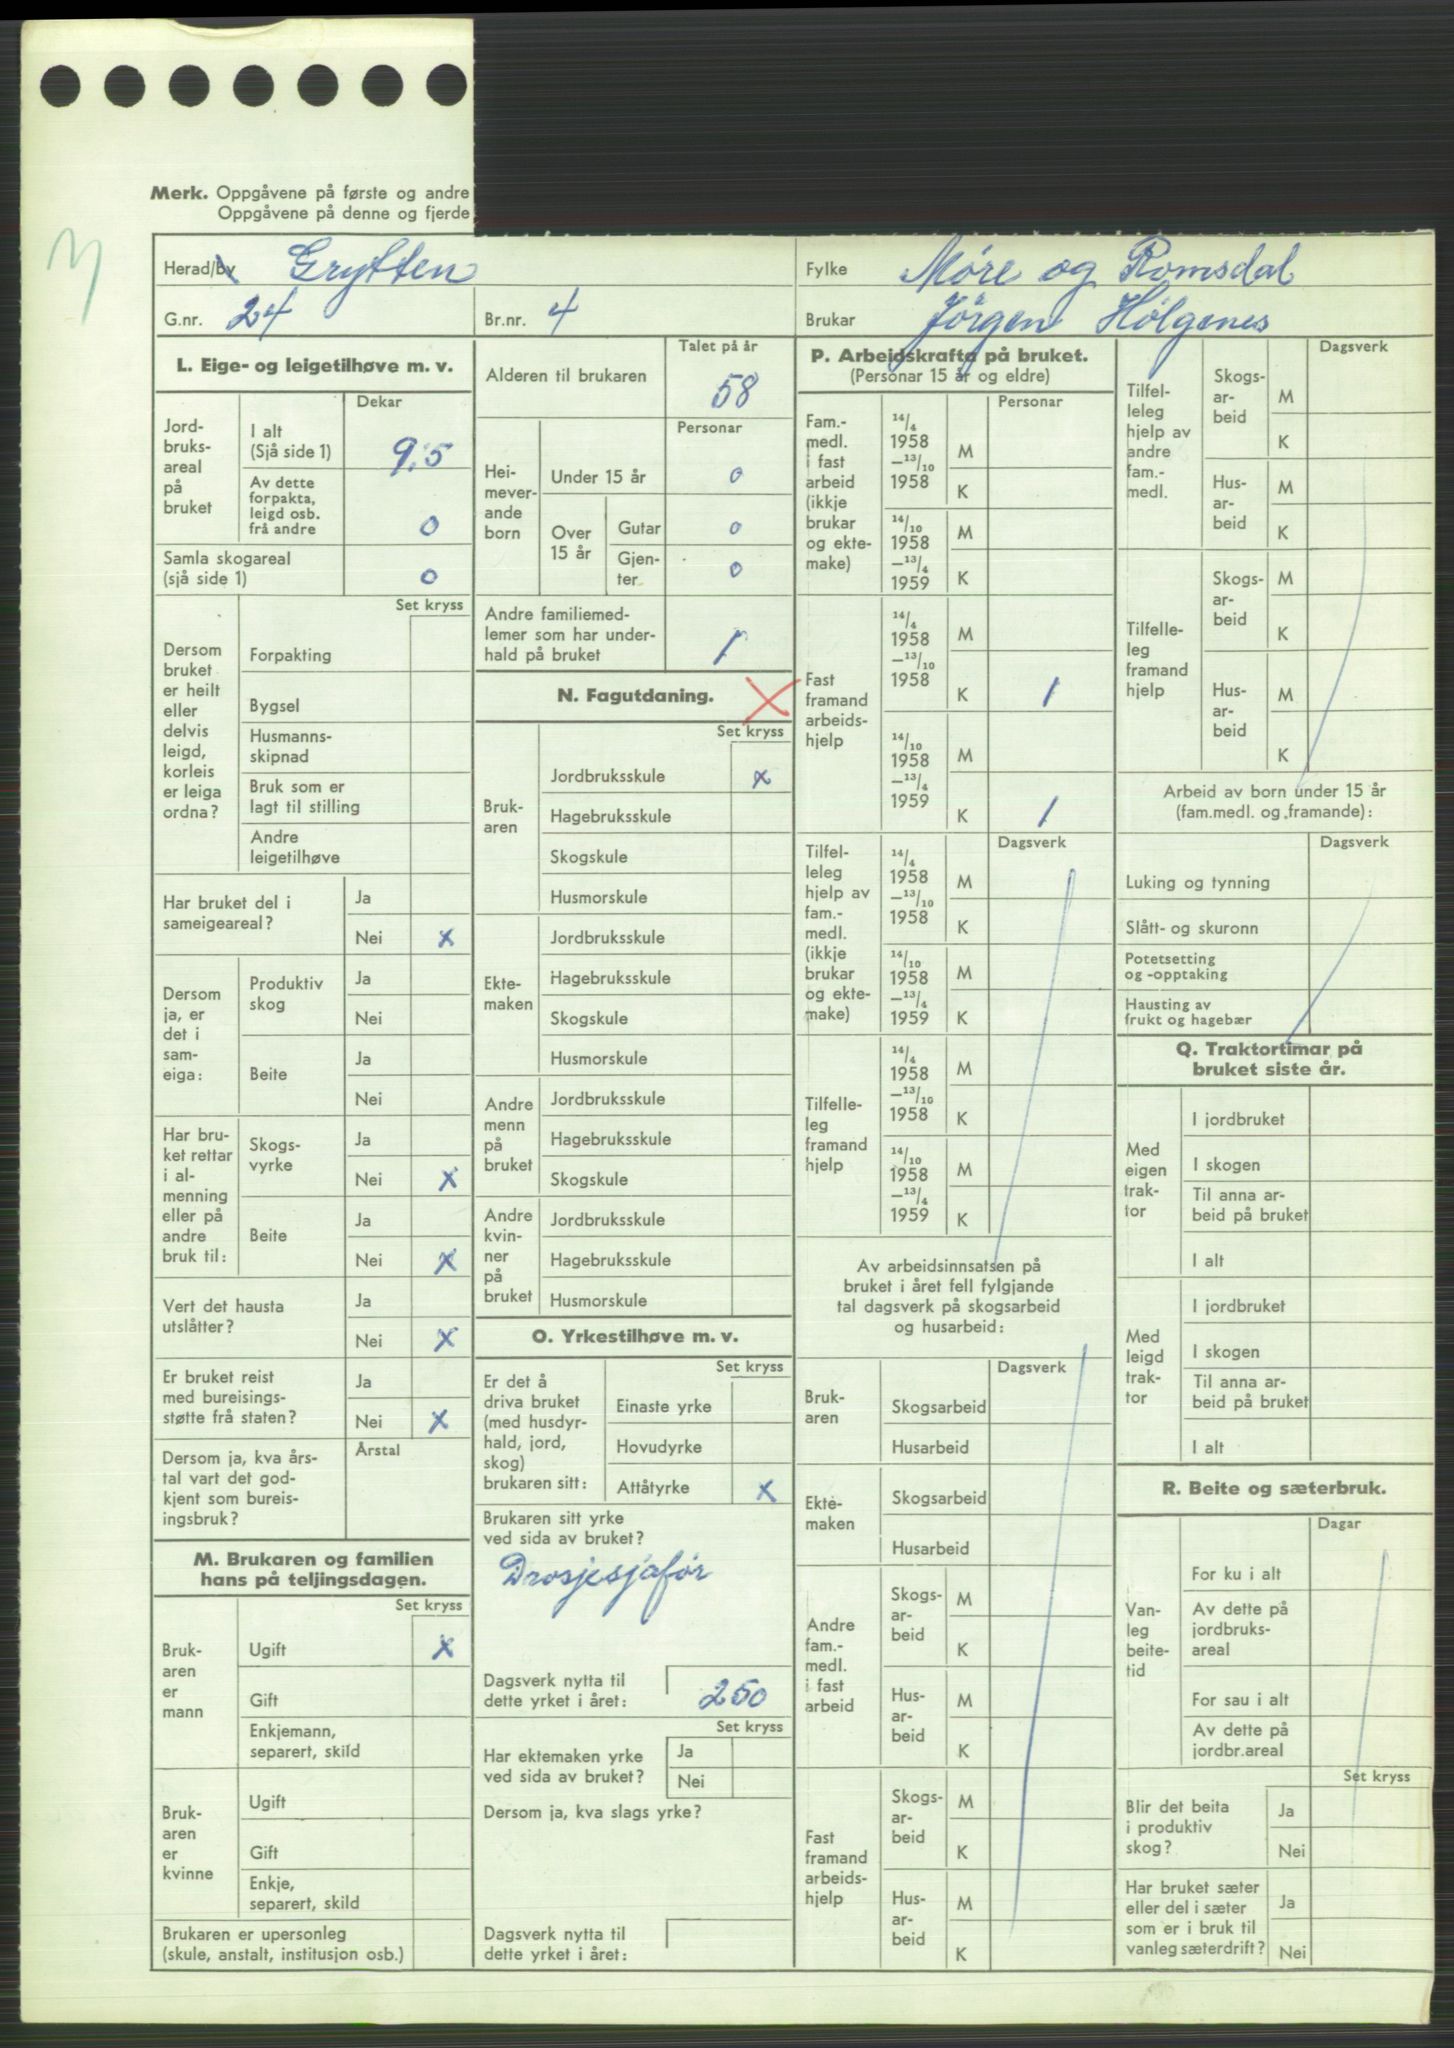 Merk. Oppgåvene på første og andre
Oppgåvene på denne og fjerde
Herad/By Grytten
Fylke Møre og Romsdal
G.nr. 24
Br.nr. 4
Brukar Jørgen Hølgenes
L. Eige- og leigetilhøve m. v.
Dekar
Jord-
bruks-
areal
på
bruket
I alt
(Sjå side 1)
9,5
Av dette
forpakta,
leigd osb.
frå andre
0
Samla skogareal
(sjå side 1)
0
Set kryss
Dersom
bruket
er heilt
eller
delvis
leigd,
korleis
er leiga
ordna?
Forpakting
Bygsel
Husmanns-
skipnad
Bruk som er
lagt til stilling
Andre
leigetilhøve
Har bruket del i
sameigeareal?
Ja
Nei x
Dersom
ja, er
det i
sam-
eiga:
Produktiv
skog
Ja
Nei
Beite
Ja
Nei
Har bru-
ket rettar
i al-
menning
eller på
andre
bruk til:
Skogs-
vyrke
Ja
Nei x
Beite
Ja
Nei x
Vert det hausta
utslåtter?
Ja
Nei x
Er bruket reist
med bureisings-
støtte frå staten?
Ja
Nei x
Dersom ja, kva års-
tal vart det god-
kjent som bureis-
ingsbruk?
Årstal
M. Brukaren og familien
hans på teljingsdagen.
Set kryss
Bruk-
aren
er
mann
Ugift x
Gift
Enkjemann,
separert, skild
Bruk-
aren
er
kvinne
Ugift
Gift
Enkje,
separert, skild
Brukaren er upersonleg
(skule, anstalt, institusjon osb.)
Talet på år
Alderen til brukaren
58
Personar
Hei-
mever-
ande
born
Under 15 år 0
Over
15 år
Gutar 0
Gjen-
ter. 0
Andre familiemed-
lemer som har under-
hald på bruket
1
N. Fagutdaning.
Set kryss
Bruk-
aren
Jordbruksskule x
Hagebruksskule
Skogskule
Husmorskule
Ekte-
maken
Jordbruksskule
Hagebruksskule
Skogskule
Husmorskule
Andre
menn
på
bruket
Jordbruksskule
Hagebruksskule
Skogskule
Andre
kvin-
ner
på
bruket
Jordbruksskule
Hagebruksskule
Husmorskule
O. Yrkestilhøve m. v.
Set kryss
Er det å
driva bruket
(med husdyr-
hald, jord,
skog)
brukaren sitt:
Einaste yrke
Hovudyrke
Attåtyrke x
Brukaren sitt yrke
ved sida av bruket?
Drosjesjafør
Dagsverk nytta til
dette yrket i året:
250
Set kryss
Har ektemaken yrke
ved sida av bruket?
Ja
Nei
Dersom ja, kva slags yrke?
Dagsverk nytta til
dette yrket i året:
P. Arbeidskrafta på bruket.
(Personar 15 år og eldre)
Personar
Fam.-
medl.
i fast
arbeid
(ikkje
brukar
og ekte-
make)
14/4
1958
—13/10
1958
M
K
14/10
1958
—13/4
1959
M
K
Fast
framand
arbeids-
hjelp
14/4
1958
—13/10
1958
M
K 1
14/10
1958
—13/4
1959
M
K 1
Dagsverk
Tilfel-
leleg
hjelp av
fam.-
medl.
(ikkje
brukar
og ekte-
make)
14/4
1958
—13/10
1958
M
K
14/10
1958
—13/4
1959
M
K
Tilfelle-
leg
framand
hjelp
14/4
1958
—13/10
1958
M
K
14/10
1958
—13/4
1959
M
K
Av arbeidsinnsatsen på
bruket i året fell fylgjande
tal dagsverk på skogsarbeid
og husarbeid:
Dagsverk
Bruk-
aren
Skogsarbeid
Husarbeid
Ekte-
maken
Skogsarbeid
Husarbeid
Andre
fam.-
medl.
i fast
arbeid
Skogs-
ar-
beid
M
K
Hus-
ar-
beid
M
K
Fast
framand
arbeids-
hjelp
Skogs-
ar-
beid
M
K
Hus-
ar-
beid
M
K
Dagsverk
Tilfel-
leleg
hjelp av
andre
fam.-
medl.
Skogs-
ar-
beid
M
K
Hus-
ar-
beid
M
K
Tilfelle-
leg
framand
hjelp
Skogs-
ar-
beid
M
K
Hus-
ar-
beid
M
K
Arbeid av born under 15 år
(fam.medl. og framande):
Dagsverk
Luking og tynning
Slått- og skuronn
Potetsetting
og -opptaking
Hausting av
frukt og hagebær
Q. Traktortimar på
bruket siste år.
Med
eigen
trak-
tor
I jordbruket
I skogen
Til anna ar-
beid på bruket
I alt
Med
leigd
trak-
tor
I jordbruket
I skogen
Til anna ar-
beid på bruket
I alt
R. Beite og sæterbruk.
Dagar
Van-
leg
beite-
tid
For ku i alt
Av dette på
jordbruks-
areal
For sau i alt
Av dette på
jordbr.areal
Set kryss
Blir det beita
i produktiv
skog?
Ja
Nei
Har bruket sæter
eller del i sæter
som er i bruk til
vanleg sæterdrift?
Ja
Nei